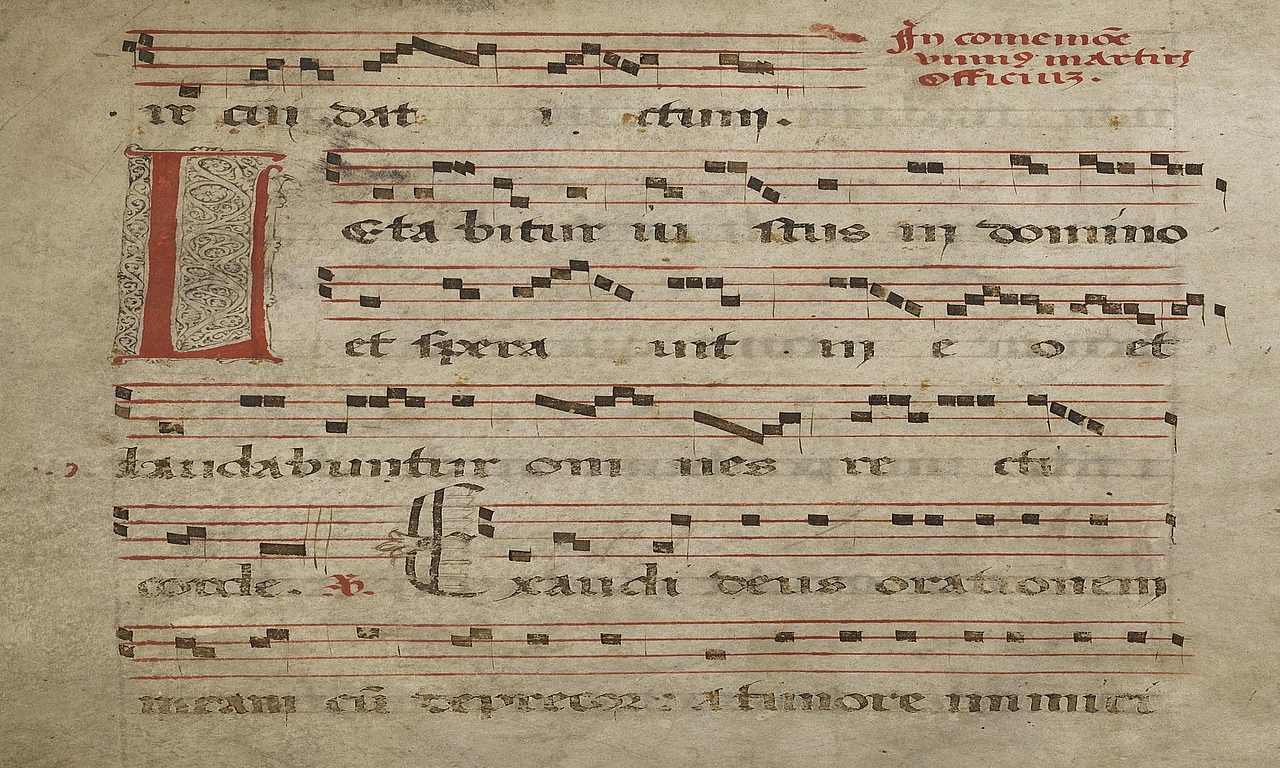 ir cun dat i ctum. In comemoe
unius martiris
Officium.
LEta bitur iu stus in domino
et spera uit in e o et
laudabuntur om nes re cti
corde. V. Exaudi deus orationem
meam cū deprecor: a timore inimici